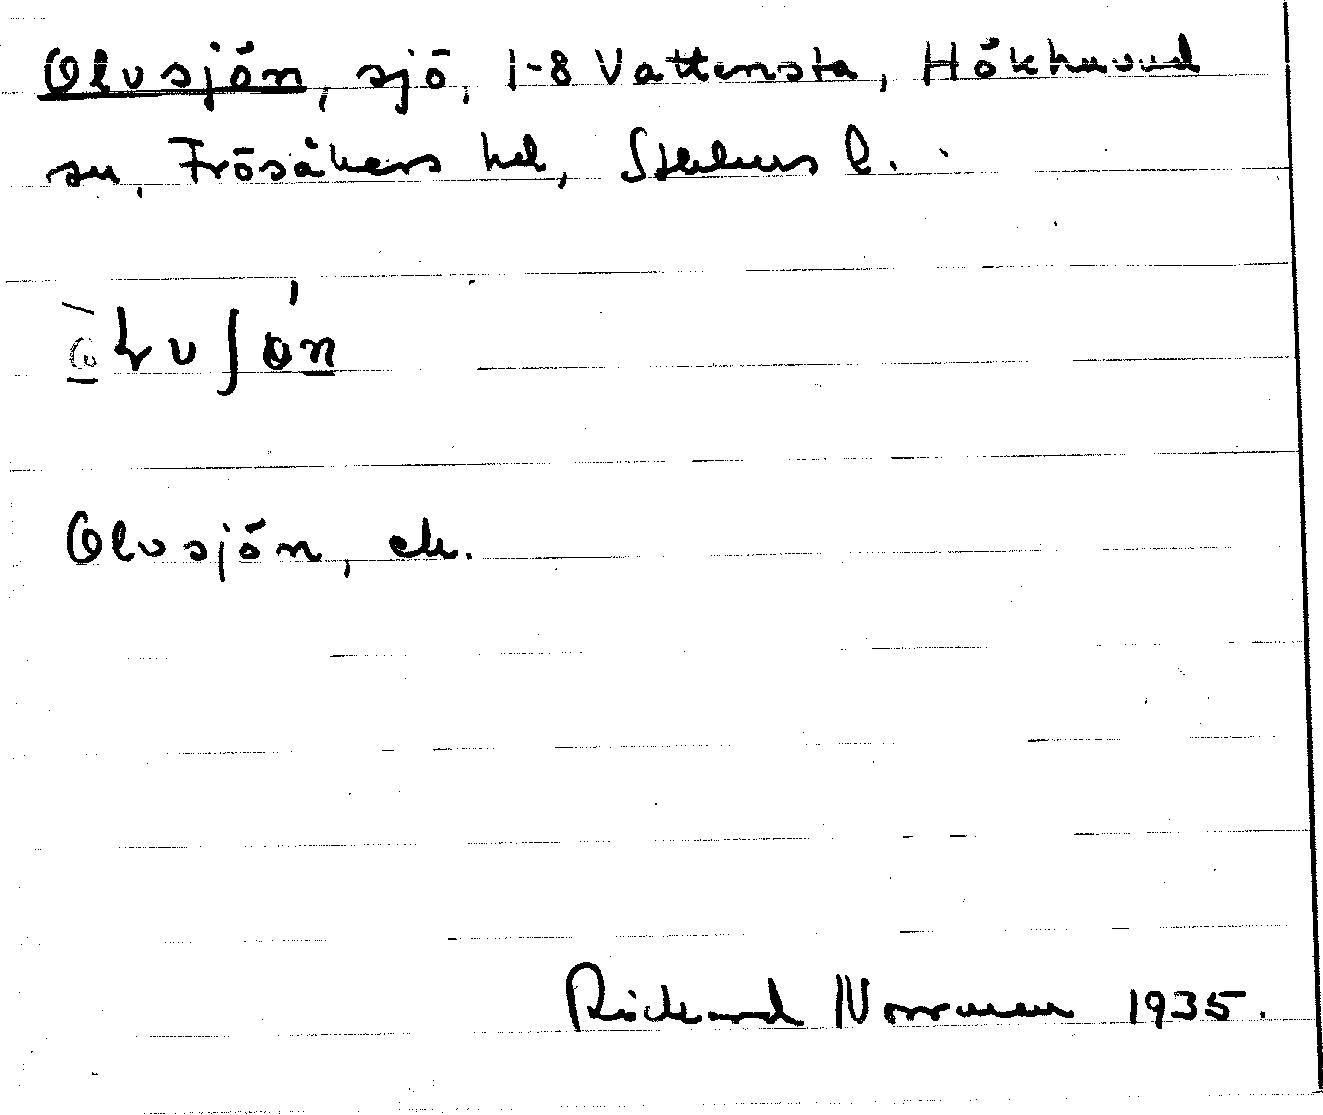 Olvsjön, sjö, 1-8 Vattensta, Hökhuvud
sn, Frösåkers hd, Sthlms l.
Olvsjön, ek.
Rickard Norrman 1935.